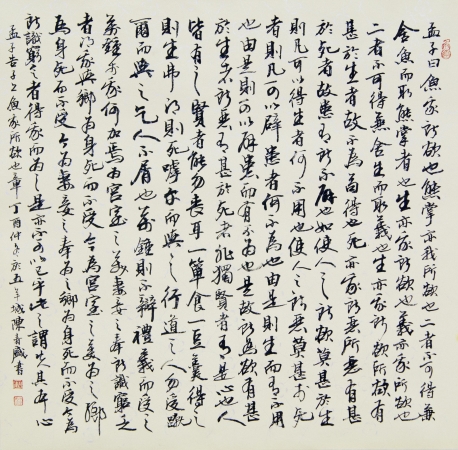 孟子曰魚我所欲也熊掌亦我所欲也二者不可得兼
舍魚而取熊掌者也生亦我所欲也義亦我所欲也
二者不可得兼舍生而取義也生亦我所欲所欲有
甚於生者故不為苟得也死亦我所惡所惡有甚
於死者故患有所不辟也如使人之所欲莫甚於生
則凡可以得生者何不用也使人之所惡莫甚於死
者則凡可以辟患者何不為也由是則生而有不用
也由是則可以辟患而有不為也是故所欲有甚
於生者所惡有甚於死者非獨賢者有是心也人
皆有之賢者能勿喪耳一簞食一豆羹得之
則生弗得則死嘑爾而與之行道之人勿受蹴
爾而與之乞人不屑也萬鐘則不辯禮義而受之
萬鐘於我何加焉為宮室之美妻妾之奉所識窮乏
者得我與鄉為身死而不受今為宮室之美為之鄉
為身死而不受今為妻妾之奉為之鄉為身死而不受今為
所識窮乏者得我而為之是亦不可以已乎此之謂失其本心
孟子告子上魚我所欲也章丁酉仲冬於五羊城陳春盛書